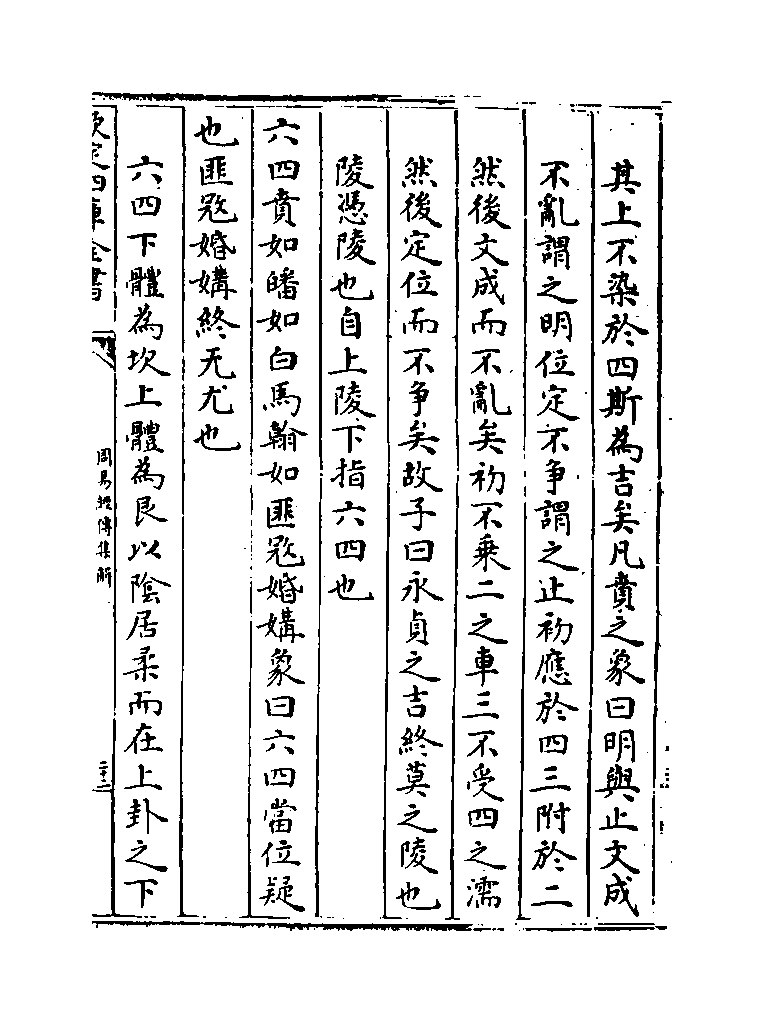 其上不染於四斯為吉矣凡賁之象曰明與止文成
不亂謂之明位定不争謂之止初應於四三附於二
然後文成而不亂矣初不乗二之車三不受四之濡
然後定位而不争矣故子曰永貞之吉終莫之陵也
陵憑陵也自上陵下指六四也
六四賁如皤如白馬翰如匪宼婚媾象曰六四當位疑
也匪宼婚媾終无尤也
六四下體為坎上體為艮以陰居柔而在上卦之下
欽定四庫全書
周易經傳集解
二十二